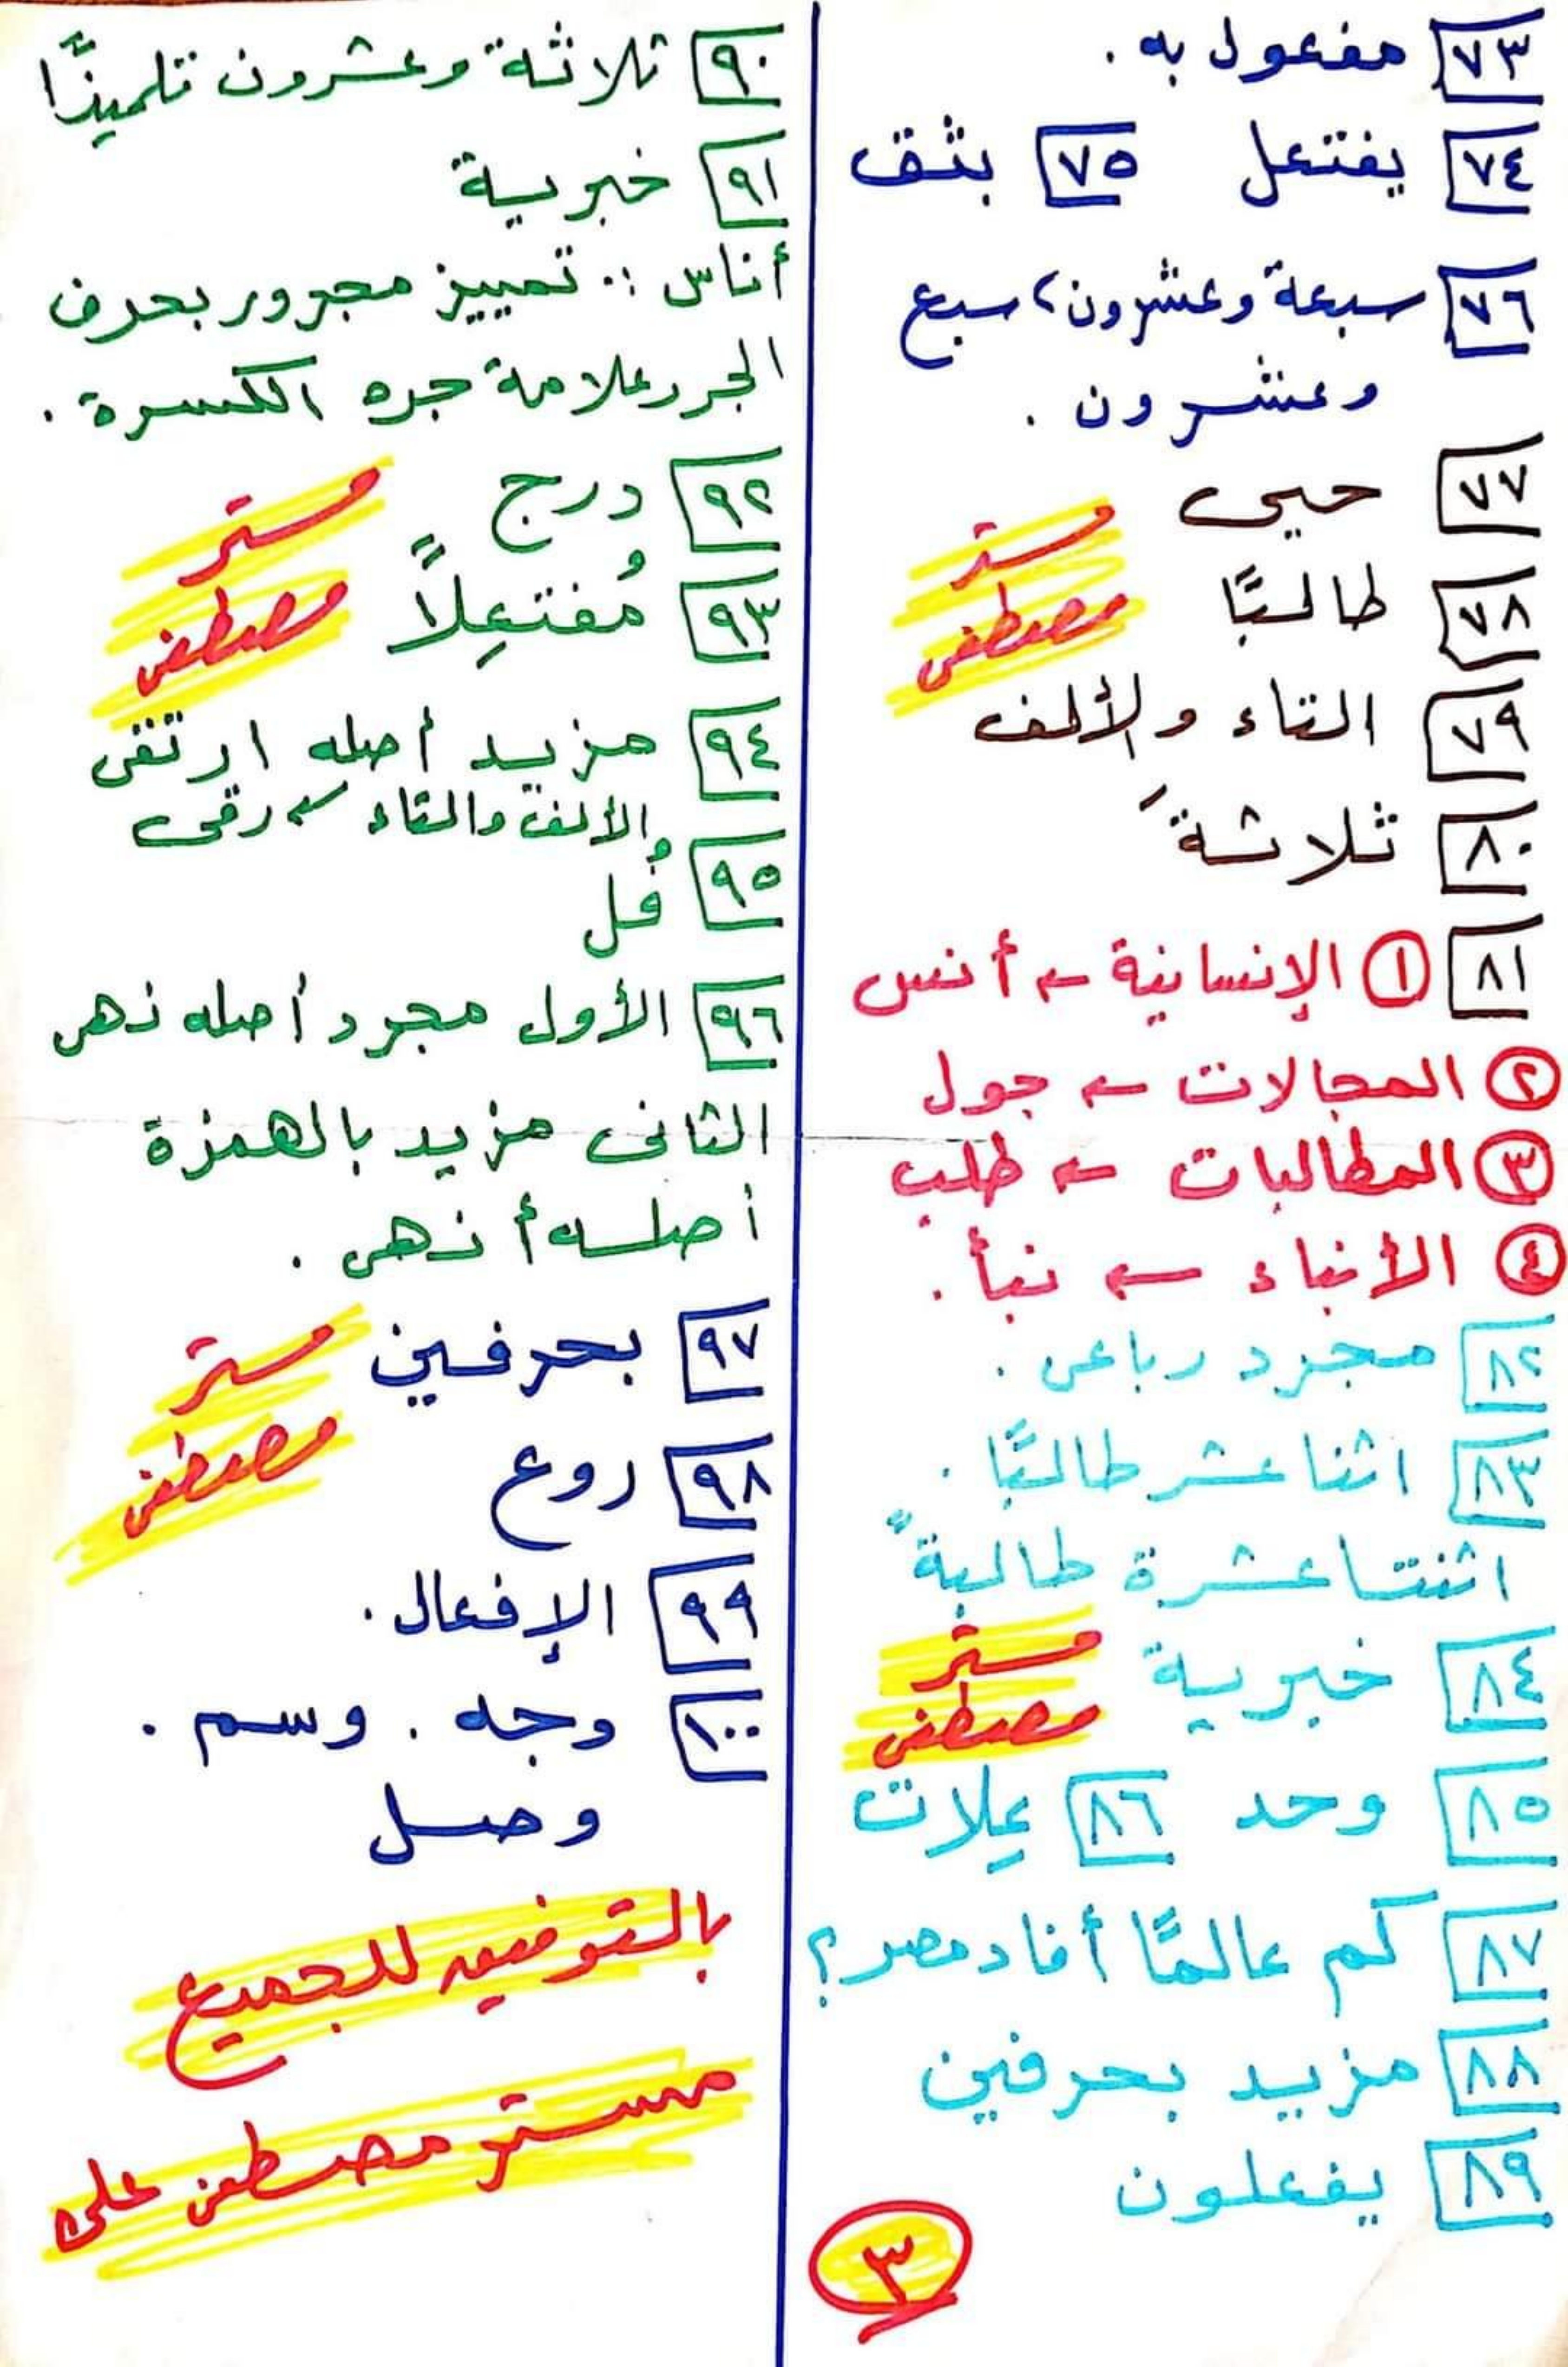 ٧٣ مفعول به .
٧٤ يفتعل ٧٥ بثق
٧٦ سبعة وعشرون، سبع
وعشرون .
٧٧ حيي
مستر
٧٨ طالبًا
مصطفى
٧٩ التاء والألف
٨٠ ثلاثةَ
٨١ ① الإنسانية ← أنس
② المجالات ← جول
③ المطالبات ← طلب
④ الأنباء ← نبأ .
٨٢ مجرد رباعى .
٨٣ اثنا عشر طالبًا .
اثنتا عشرة طالبةً
٨٤ خبرية
مستر
مصطفى
٨٥ وحد ٨٦ عِلات
٨٧ كم عالمًا أفاد مصر؟
٨٨ مزيد بحرفين
٨٩ يفعلون
٣
٩٠ ثلاثة وعشرون تلميذًا
٩١ خبرية
أناس :. تمييز مجرور بحرف
الجر وعلامة جره الكسرة .
٩٢ درج
مستر
٩٣ مُفتعِلاً
مصطفى
٩٤ مزيد أصله ارتقى
الألف والتاء ← رقى
٩٥ فُل
٩٦ الأول مجرد أصله نهى
الثانى مزيد بالهمزة
أصله أنهى .
٩٧ بحرفين
مستر
٩٨ روع
مصطفى
٩٩ الإفعال .
١٠٠ وجه . وسم .
وصل
بالتوفيق للجميع
مستر مصطفى على